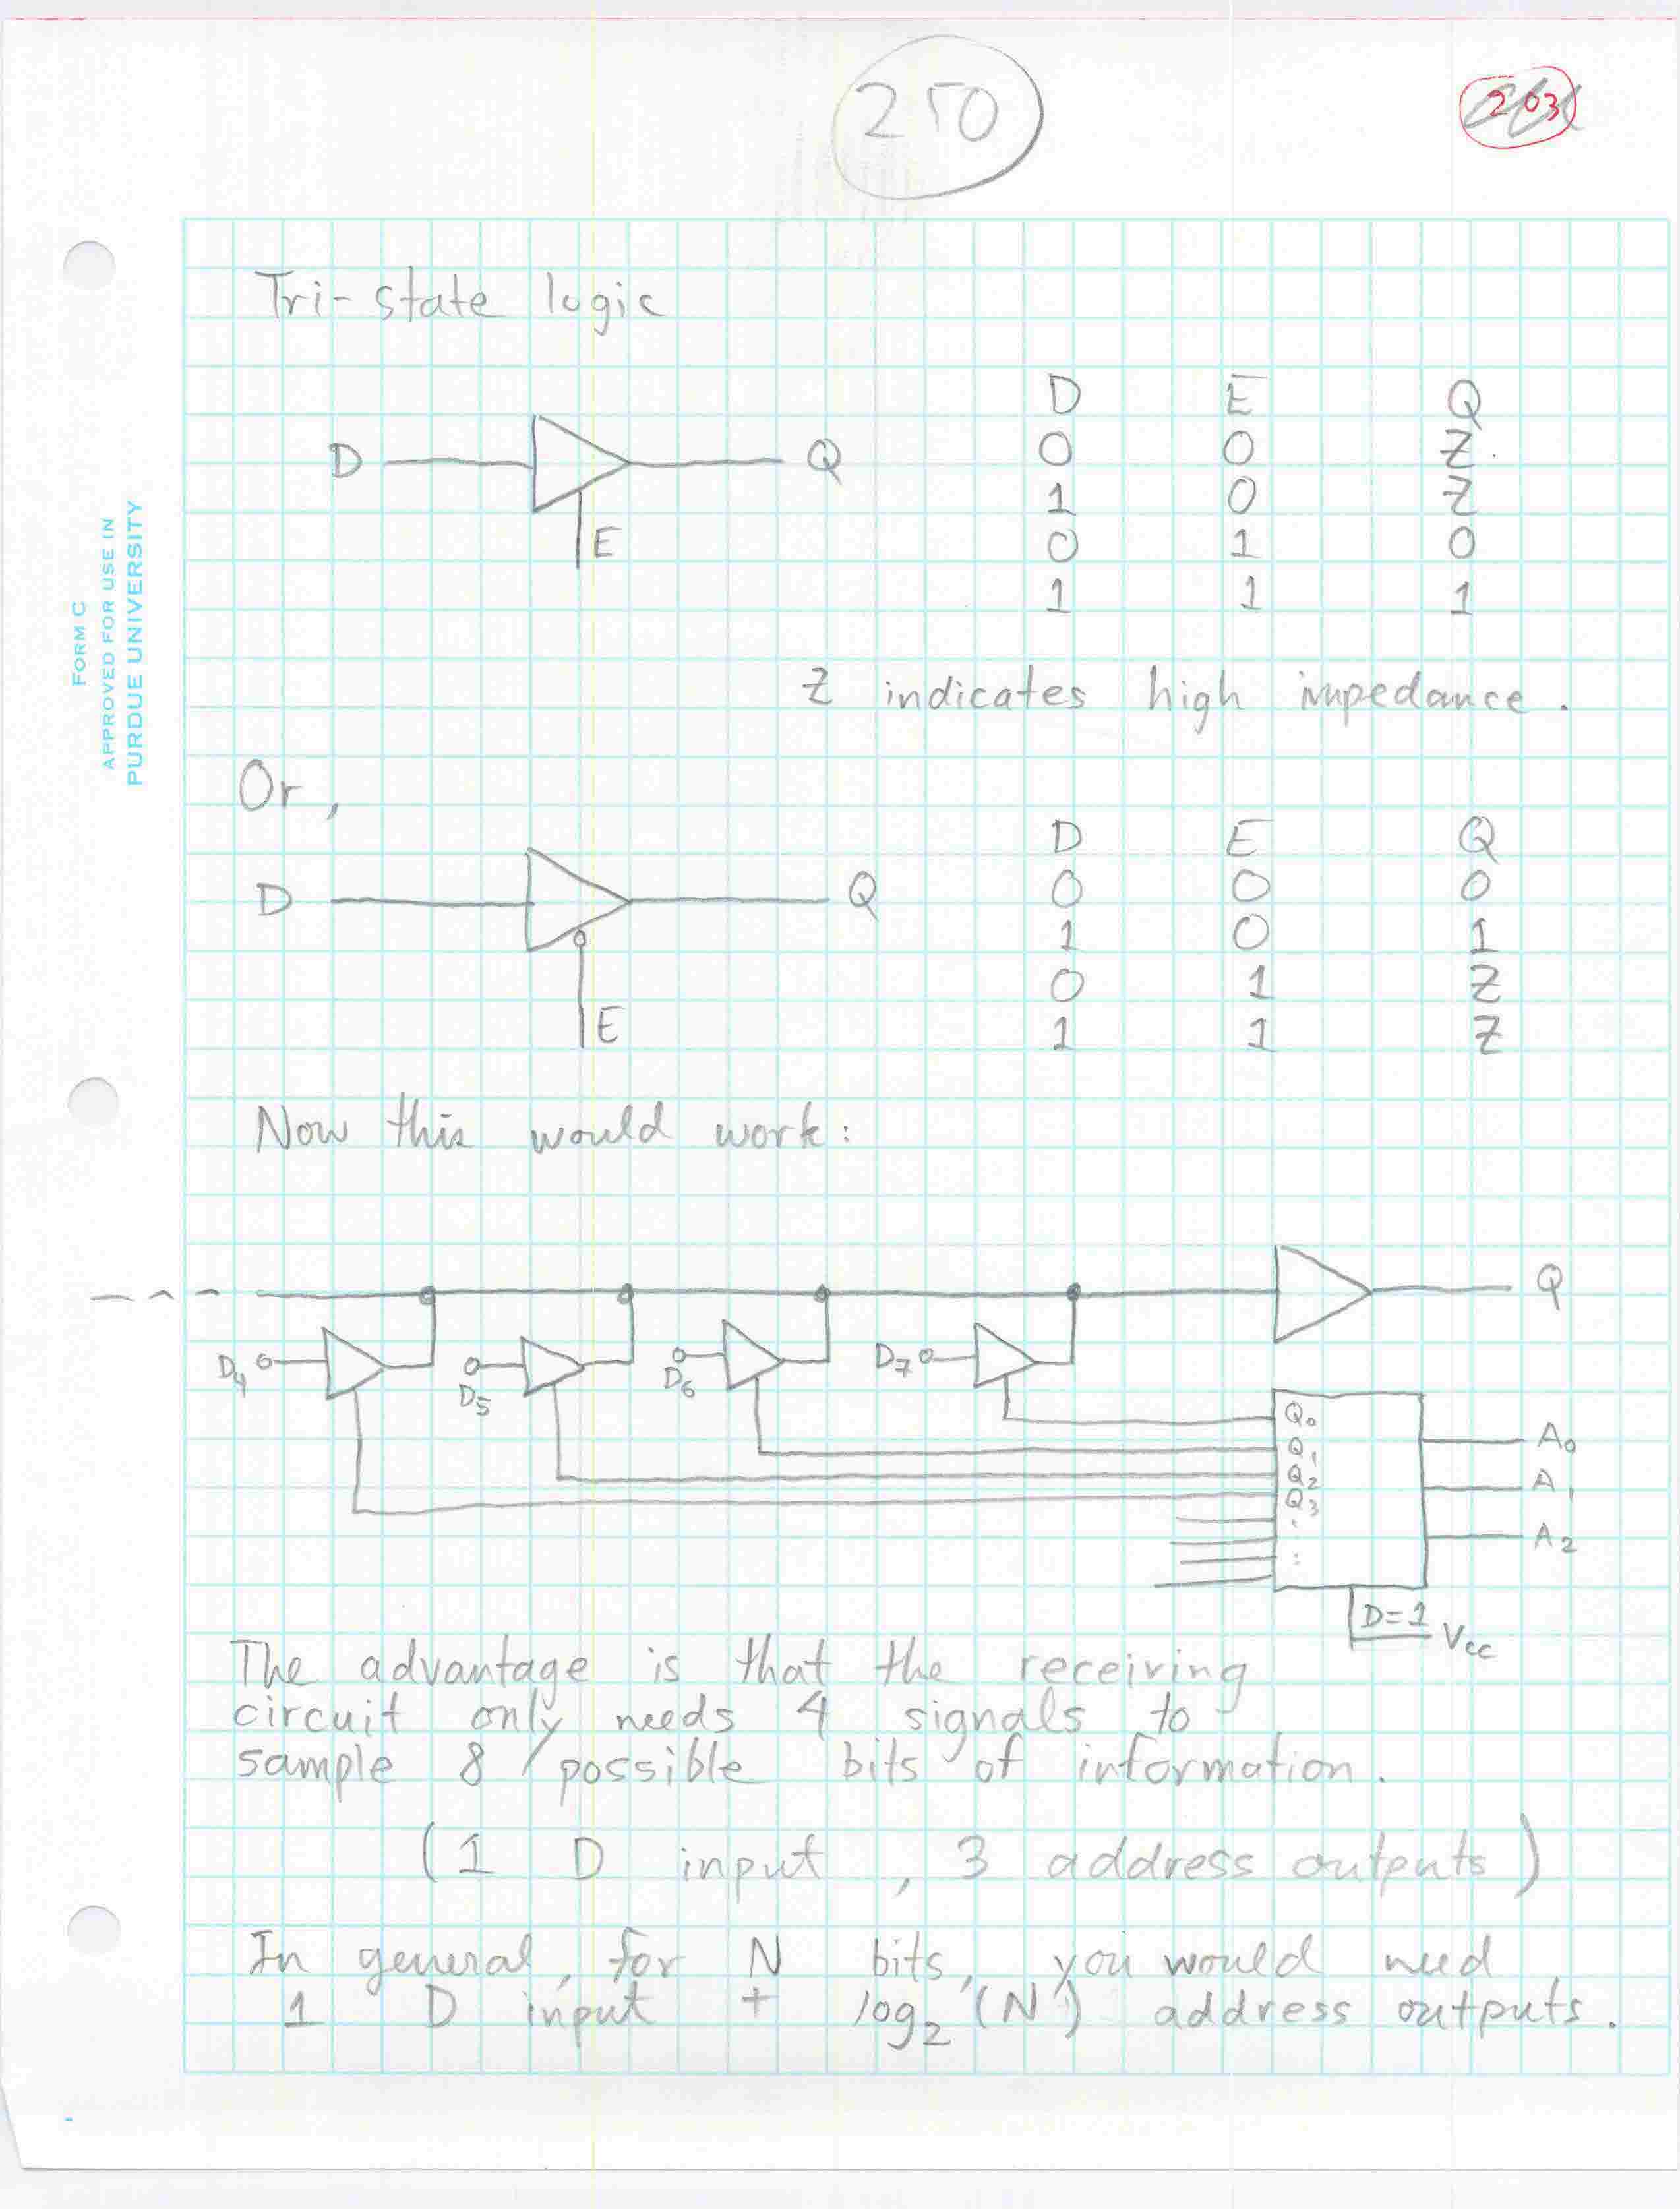 250
203
FORM C
APPROVED FOR USE IN
PURDUE UNIVERSITY
Tri-state logic
D Q
E
D E Q
0 0 Z
1 0 Z
0 1 0
1 1 1
Z indicates high impedance.
Or,
D Q
E
D E Q
0 0 0
1 0 1
0 1 Z
1 1 Z
Now this would work:
Q
D4 D5 D6 D7
Q0
Q1
Q2
Q3
A0
A1
A2
D=1 Vcc
The advantage is that the receiving
circuit only needs 4 signals to
sample 8 possible bits of information.
(1 D input, 3 address outputs)
In general, for N bits, you would need
1 D input + log2(N) address outputs.